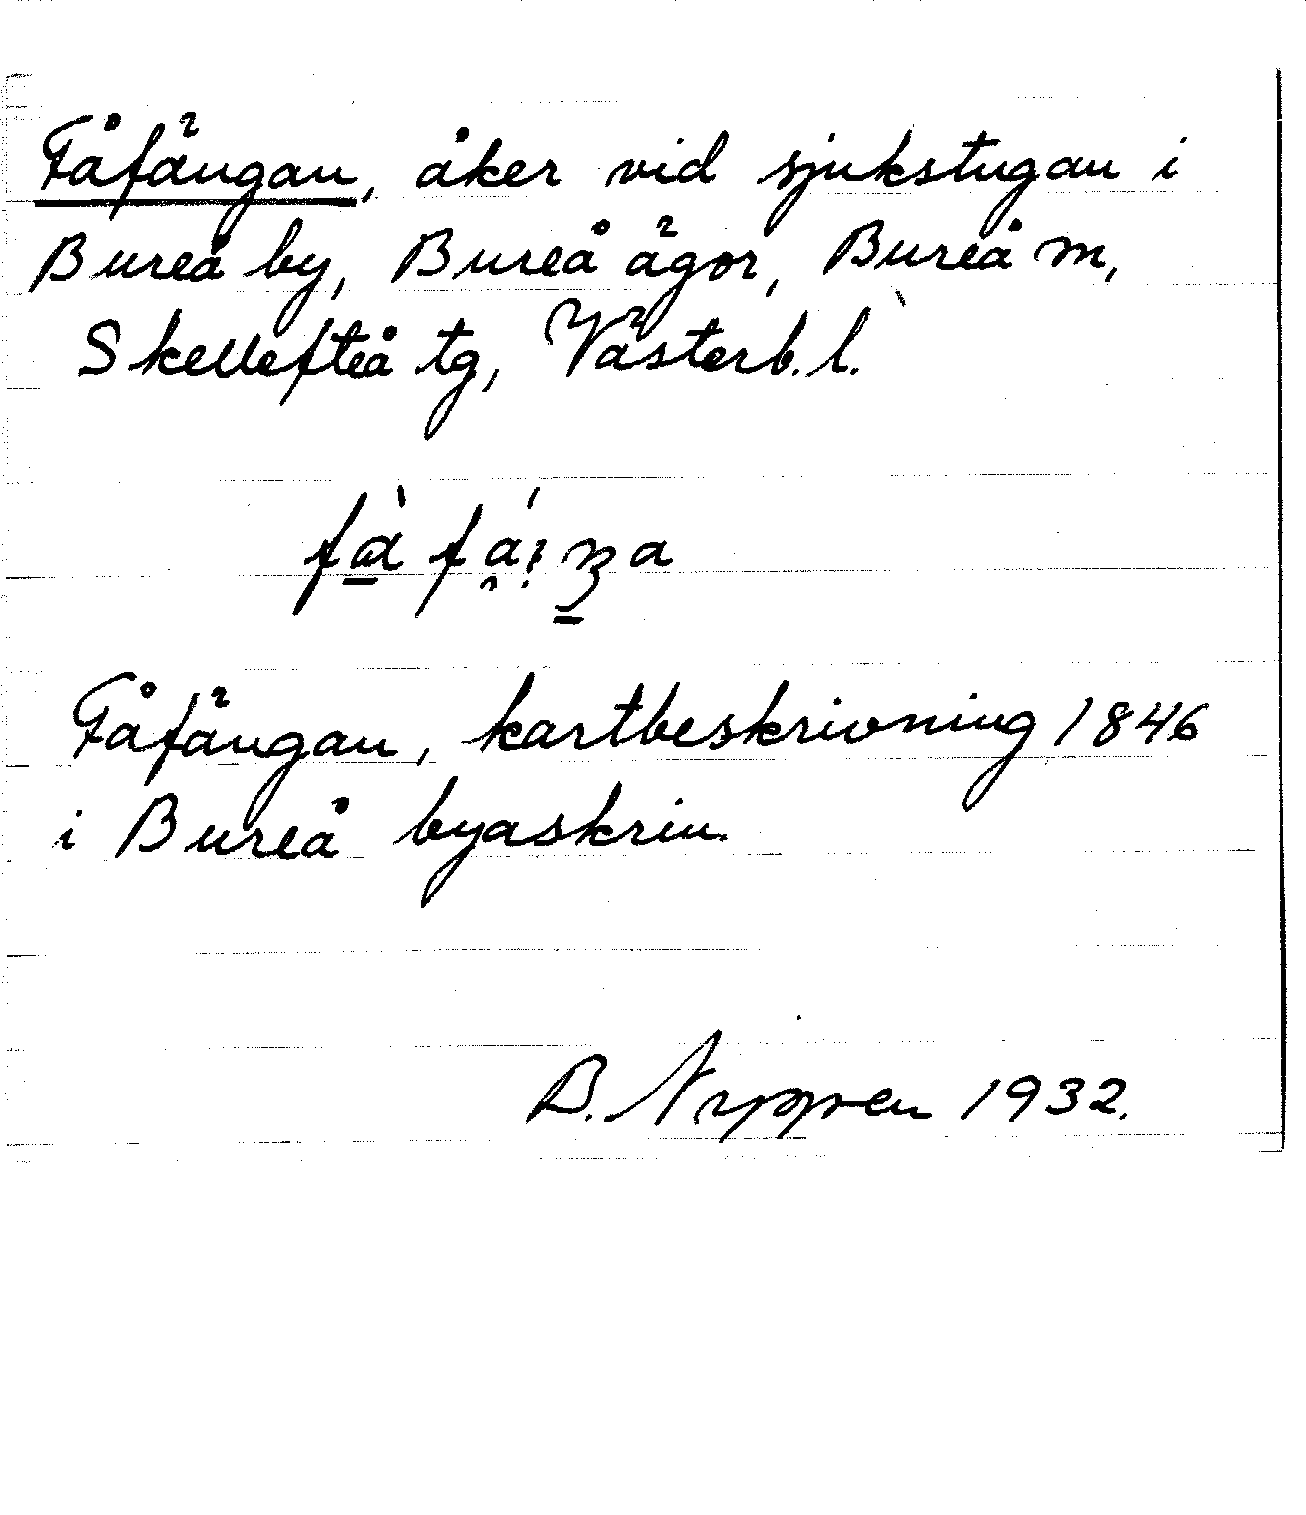 Fåfängan, åker vid sjukstugan i
Bureå by, Bureå ägor, Bureå m,
Skellefteå tg, Västerb. l.
Fåfängan, kartbeskrivning 1846
i Bureå byaskrin.
B. 1932.